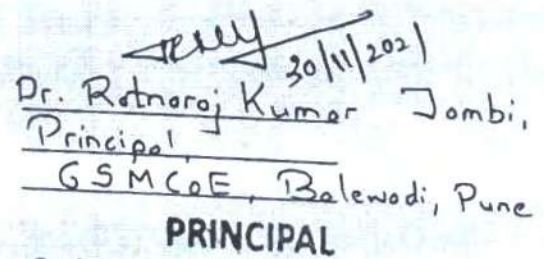 30/11/2021
Dr. Ratnaraj Kumar Jambi,
Principal,
GSMCoE, Balewadi, Pune
PRINCIPAL